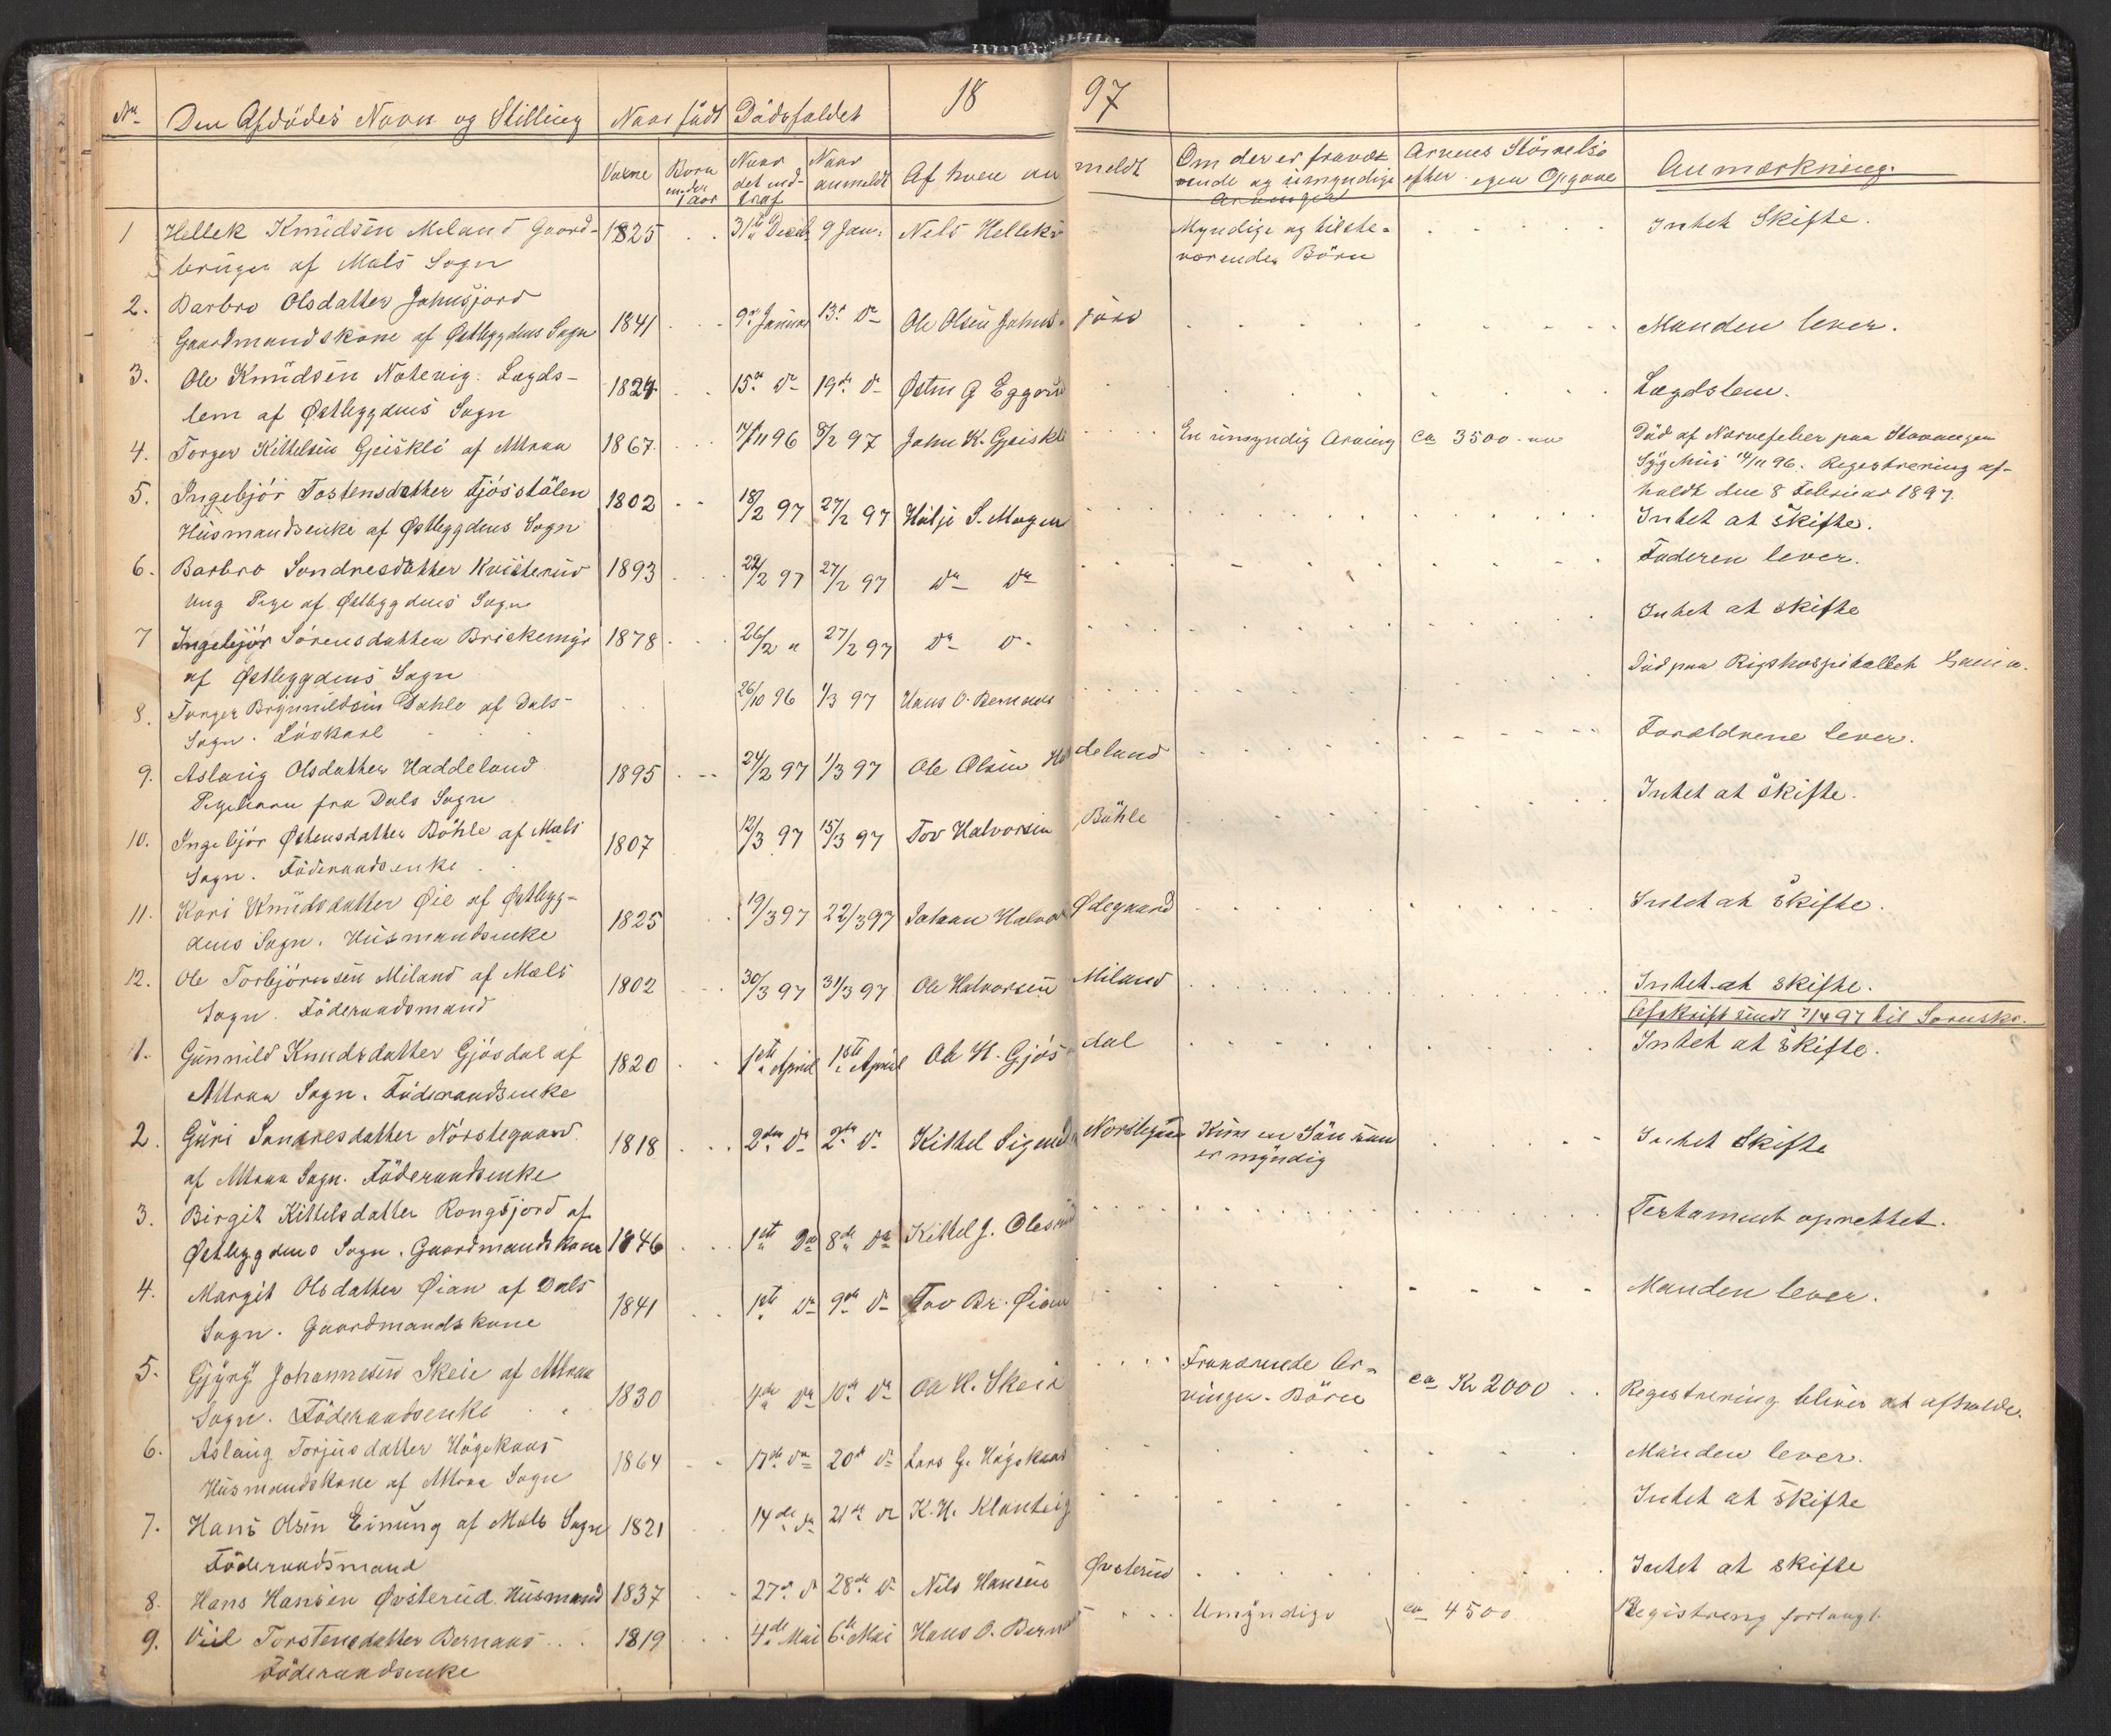 18 97
No. Den Afdödes Navn og Stilling Naar född Dödsfaldet
Voxne Börn under 1 aar Naar det indtraf Naar anmeldt Af hvem anmeldt Om der er fraværende og umyndige Arvinger Arvens Störrelse efter egen Opgave Anmærkning.
1 Hellek Knudsen Meland Gaard- 1825 31te Decbr 9 Jan. Nels Helleks Myndige og tilste- Intet Skifte.
bruger af Mæls Sogn værende Börn
2. Barbro Olsdatter Jahnsjord
Gaardmandskone af Østbygdens Sogn 1841 9de Januar 13de Do Ole Olsen Jahnsjord Manden lever.
3. Ole Knudsen Notevig. Lægds- 1824 15de Do 19de Do Østen G Eggerud Lægdslem.
lem af Østbygdens Sogn
4. Torger Kittelsen Gjeiskli af Attraa 1867 14/11 96 8/2 97 John K. Gjeiskli En umyndig Arving ca 3500 Död af Nervefeber paa Stavanger
Sygehus 14/11 96. Registrering af-
holdt den 8 Februar 1897.
5. Ingebjör Tostensdatter Fjösstölen 1802 18/2 97 27/2 97 Hölje S. Mogen Intet at skifte.
Husmandsenke af Østbygdens Sogn
6. Barbro Sondresdatter Kvisterud 1893 22/2 97 27/2 97 Do Do Faderen lever.
Ung Pige af Østbygdens Sogn
7 Ingebjör Sörensdatter Brickemyr 1878 26/2 " 27/2 97 Do Do Intet at skifte
af Østbygdens Sogn
8. Torger Brynnildsen Dahle af Dals- 26/10 96 1/3 97 Hans O. Bernaas Död paa Rigshospitallet
Sogn. Löskarl
9. Aslaug Olsdatter Haddeland 1895 24/2 97 1/3 97 Ole Olsen Haddeland Forældrene lever.
Pigebarn fra Dals Sogn
10. Ingebjör Østensdatter Böhle af Mæls 1807 12/3 97 15/3 97 Tov Halvorsen Böhle Intet at skifte.
Sogn. Föderaadsenke
11. Kari Knudsdatter Øie af Østbygg- 1825 19/3 97 22/3 97 Johan Halvor Ødegaard Intet at skifte.
dens Sogn. Husmandsenke
12. Ole Torbjörnsen Miland af Mæls 1802 30/3 97 31/3 97 Ole Halvorsen Miland Intet at skifte.
Sogn. Föderaadsmand
Afskrift sendt 7/4 97 til Sorensk.
1. Gunnild Knudsdatter Gjösdal af 1820 1ste April 1ste April Ole H. Gjösdal Intet at skifte.
Attraa Sogn. Föderaadsenke
2. Guri Sondresdatter Nörstegaard 1818 2den Do 2den Do Kittel Sigurd Norstegaar Kun en Sön som Intet Skifte
af Attraa Sogn. Föderaadsenke er myndig
3. Birgit Kittelsdatter Rongsjord af
Østbygdens Sogn. Gaardmandskone 1846 1ste Do 8de Do Kittel J. Olesrud Testament oprettet.
4. Margit Olsdatter Øian af Dals 1841 1ste Do 9de Do Tov Br. Øian Manden lever.
Sogn. Gaardmandskone
5. Gjyrj Johannesen Skeie af Attraa 1830 4de Do 10de Do Ole H. Skeie Fraværende Ar- ca Kr 2000 Registrering bliver at afholde.
Sogn. Föderaadsenke vinger. Börn
6. Aslaug Torjusdatter Högekaas 1864 17de Do 20de Do Lars G. Högekaas Manden lever.
Husmandskone af Attraa Sogn
7. Hans Olsen Einung af Mæls Sogn 1821 14de Do 21de Do K. H. Klonteig Intet at skifte
Föderaadsmand
8. Hans Hansen Øvsterud. Husmand 1837 27de Do 28de Do Nils Hansen Øvsterud Intet at skifte
9. Viel Torstensdatter Bernaas 1819 4de Mai 6te Mai Hans O. Bernaas Umyndige ca 4500 Registreng forlangt.
Föderaadsenke